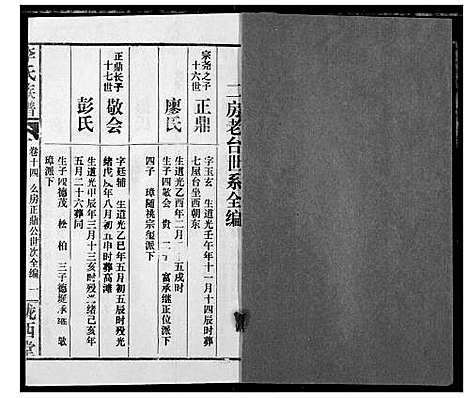 二房老台世系全编
宗尧之子
十六世
正鼎
字玉玄 生道光壬午年十一月十四辰时葬
七屋台坐西朝东
廖氏
生道光乙酉年二月二 五戌时
生子四敬会 贵 二 富承继正位下
四子 璋随祧宗玺派下
正鼎长子
十七世
敬会
字廷辅 生道光乙巳年五月初五辰时殁光
绪戊 年八月初五申时葬高滩
彭氏
生道光甲辰年三月十三亥时殁光绪己亥年
五月二十六葬同
生子四德茂 松 柏 三子德 承继 敬
璋派下
李氏族谱
卷十四 么房正鼎公世次全编 一
陇西堂